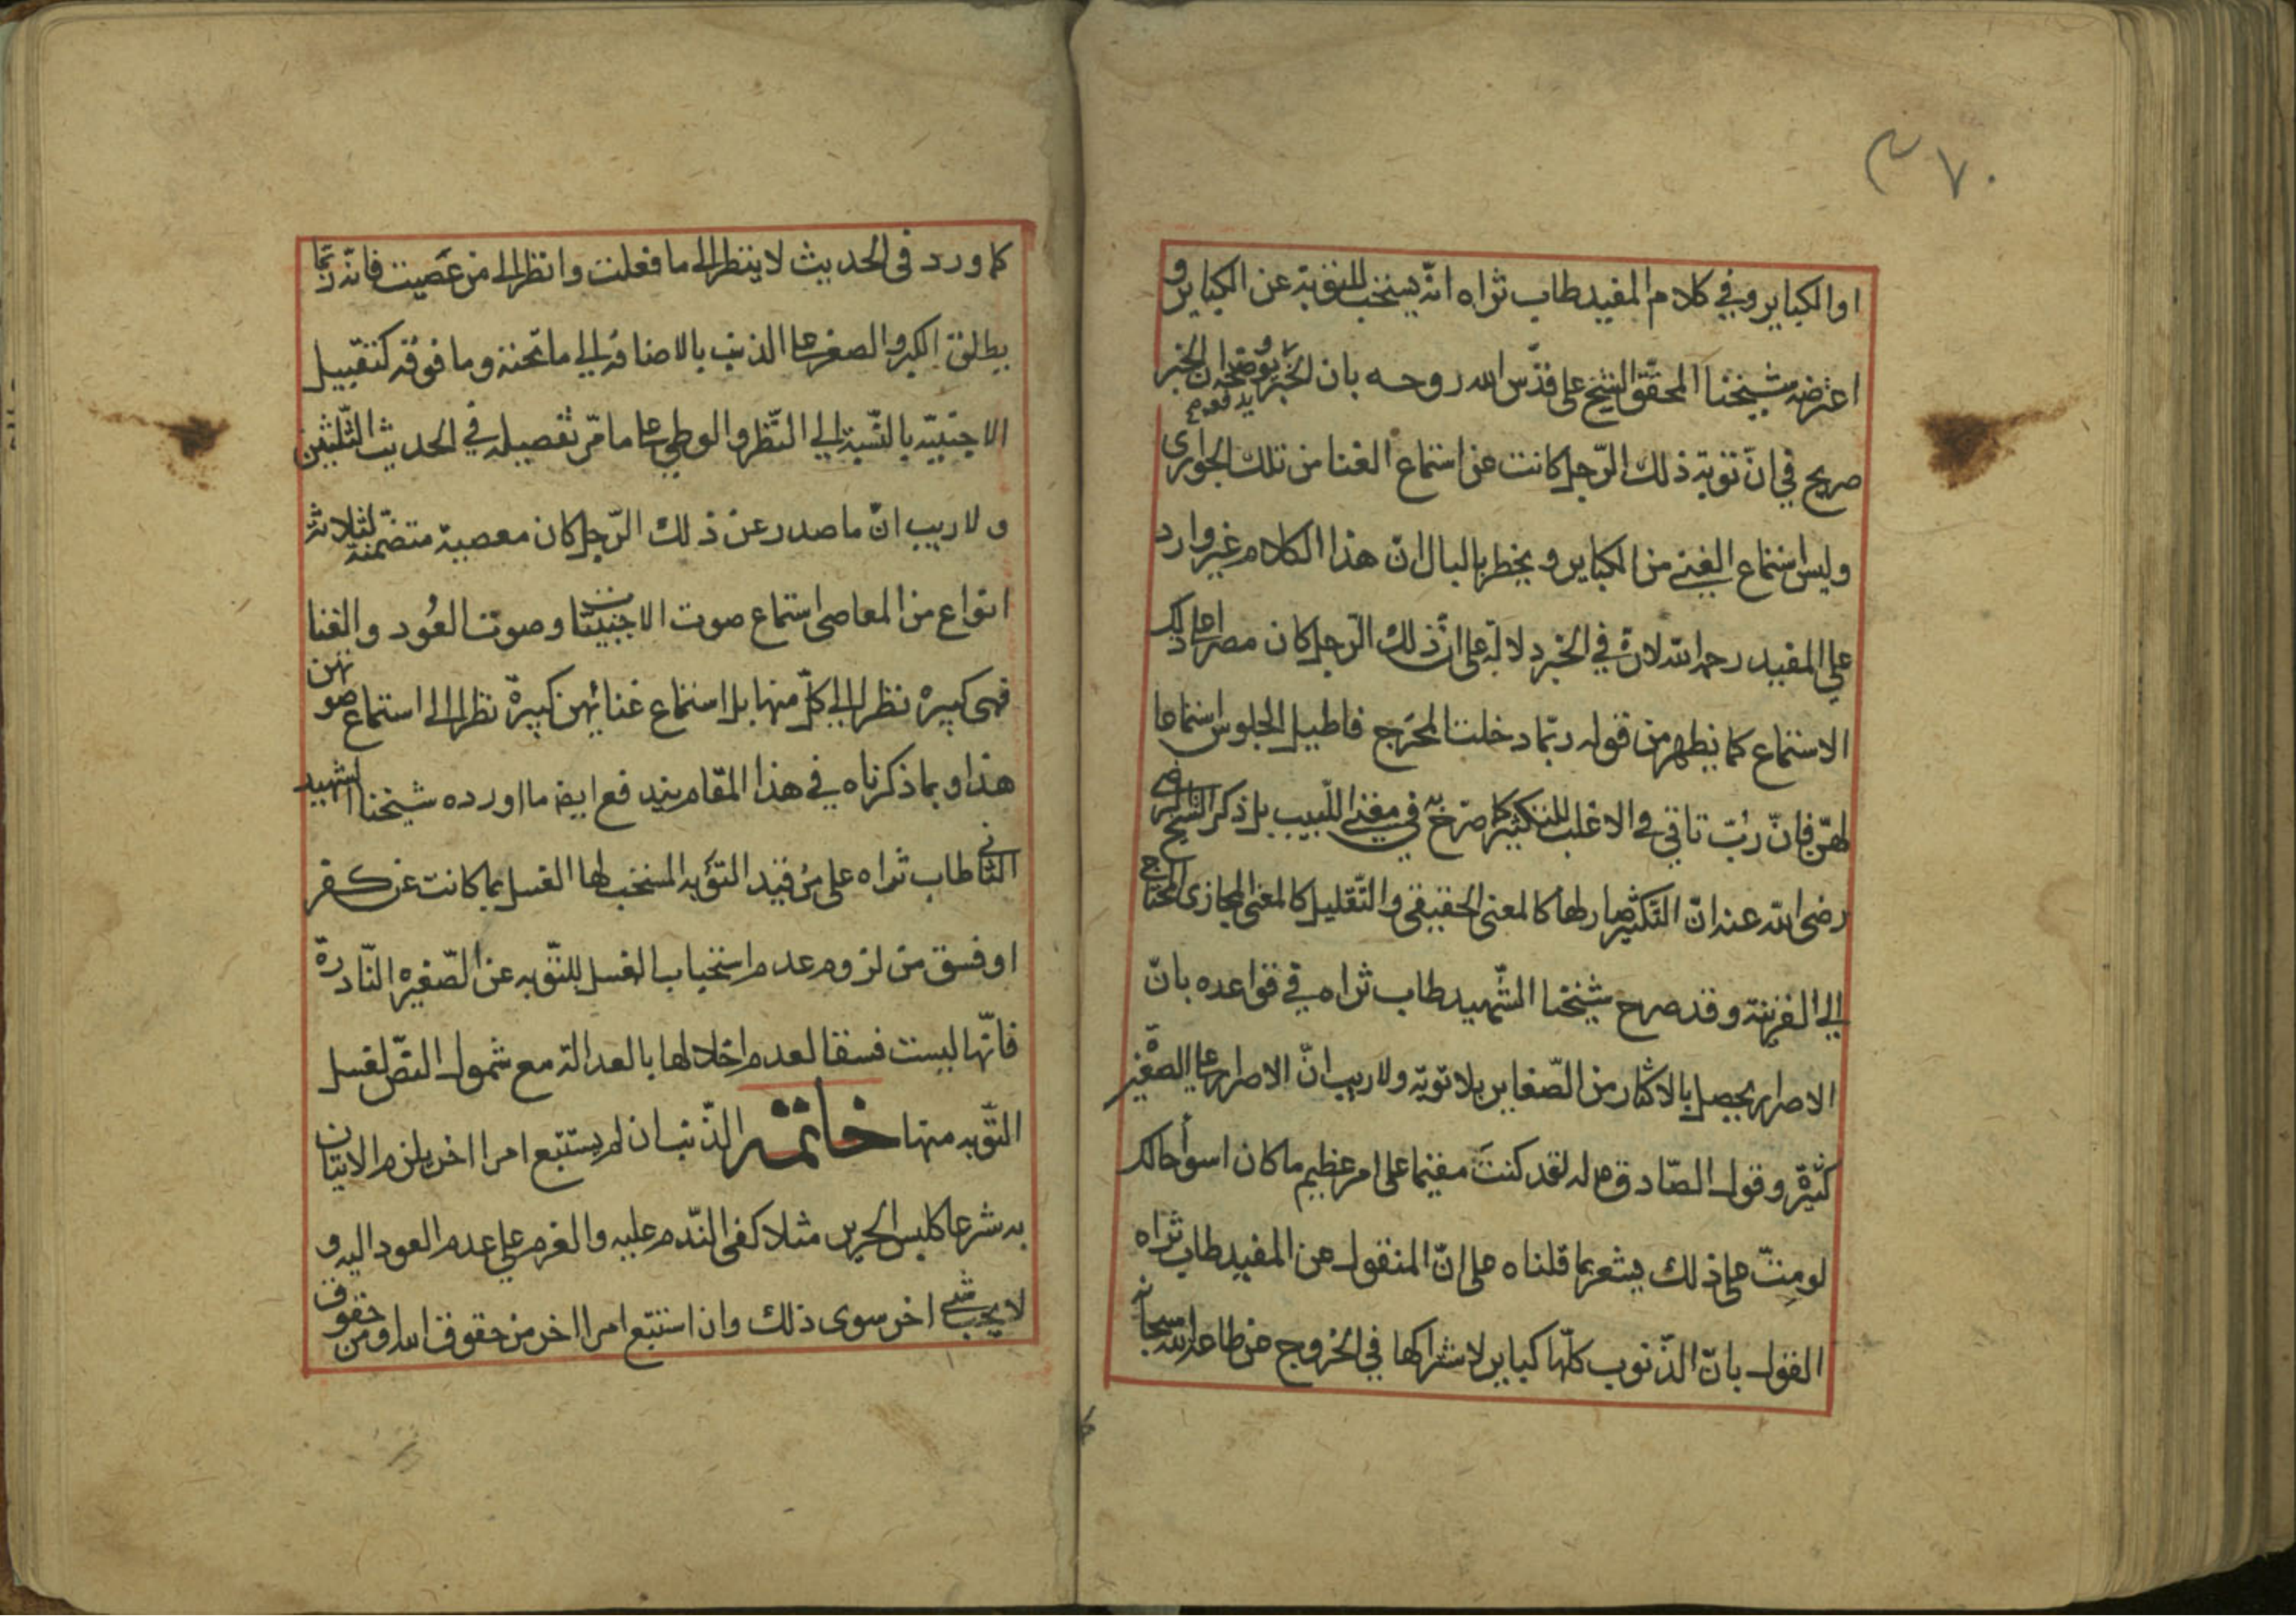 ٣٧٠
او الكباير وفي كلام المفيد طاب ثراه انّه يستحب للتوبة عن الكباير و
اعترضه شيخنا المحقق الشيخ علي قدّس الله روحه بان الخبر يدفعه لان الخبر
صريح في انّ توبة ذلك الرّجل كانت عن استماع الغنا من تلك الجوارى
وليس استماع الغنى من الكباير و يخطر بالبال انّ هذا الكلام غير وارد
على المفيد رحمه الله لانّه في الخبر دلالة على انّ ذلك الرّجل كان مصرا على ذلك
الاستماع كما يظهر من قوله ربّما دخلت المخرج فاطيل الجلوس استماعا
لهنّ فانّ ربّ تاتي في الاغلب للتكثير كما صرّح به في مغنى اللّبيب بل ذكر الشيخ الرضي
رضى الله عنه انّ التّكثير صار لها كالمعنى الحقيقي والتّقليل كالمعنى المجازى المحتاج
الي القرينة وقد صرح شيخنا الشّهيد طاب ثراه في قواعده بانّ
الاصرار يحصل بالاكثار من الصّغاير بلا توبة ولا ريب انّ الاصرار على الصغيرة
كثيرة وقول الصّادق ع له لقد كنتَ مقيما على امر عظيم ما كان اسوأ حالك
لو مِتّ على ذلك يشعر بما قلناه على انّ المنقول عن المفيد طاب ثراه
القول بانّ الذّنوب كلّها كباير لاشتراكها في الخروج عن طاعة الله سبحانه
كما
كما ورد في الحديث لا ينظر الى ما فعلت وانظر الى من عَصيت فانّه ربّما
يطلق الكبر والصغر على الذنب بالاضافة الي ما تحته وما فوقه كتقبيل
الاجنبيّه بالنّسبة الي النّظر والوطي على ما مّر تفصيله في الحديث الثّلثين
ولا ريب انّ ما صدر عن ذلك الرّجل كان معصية متضمّنة لثلاثة
انواع من المعاصى استماع صوت الاجنبيّات وصوت العُود والغنا
فهى كبيرة نظرا الي كلّ منها بل استماع غنائهن كبيرة نظرا الى استماع صوتهن
هذا وبما ذكرناه في هذا المقام يندفع ايضا ما اورده شيخنا الشهيد
الثاني طاب ثراه على من قيد التّوبه المستحب لها الغسل بما كانت عن كفر
او فسق من لزوم عدم استحباب الغسل للتّوبه عن الصّغيره النّادرة
فانّها ليست فسقا لعدم اخلالها بالعدالة مع شمول النصّ لغسل
التّوبه منها خاتمه الذّنب ان لم يستتبع امرا اخر يلزم الاتيان
به شرعا كلبس الحرير مثلا كفى النّدم عليه والعزم علي عدم العود اليه و
لا يجب شئ اخر سوى ذلك وان استتبع امرا اخر من حقوق الله ومن حقوق